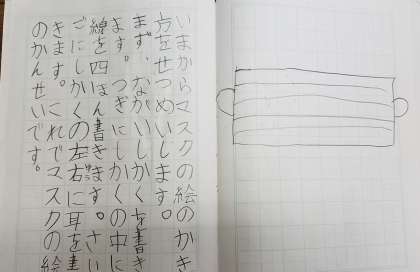 いまからマスクの絵のかき
方をせつめいします。
まず、ながいしかくを書き
ます。つぎにしかくの中に
線を四ほん書きます。さい
ごにしかくの左右に耳を書
きます。これでマスクの絵
のかんせいです。